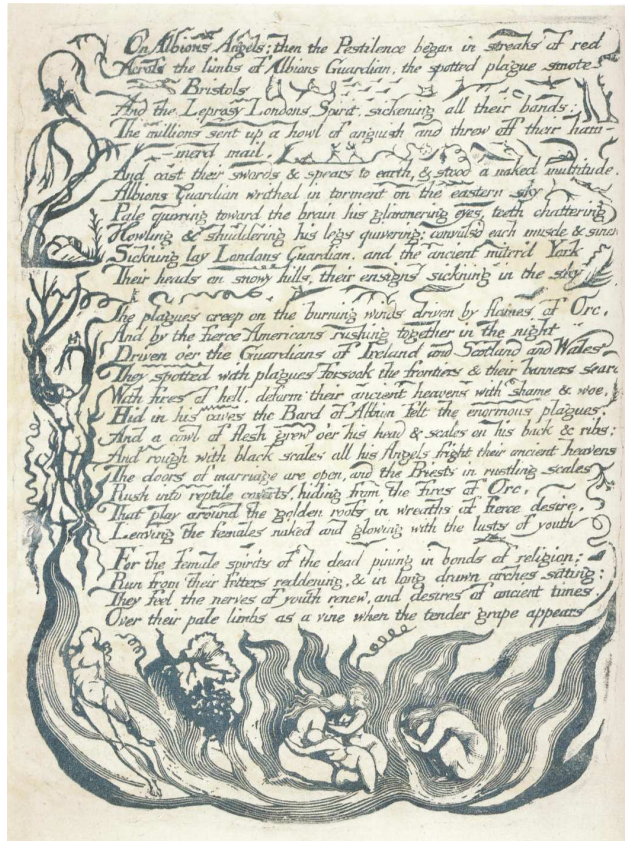 On Albions Angels; then the Pestilence began in streaks of red
Across the limbs of Albions Guardian, the spotted plague smote
Bristols
And the Leprosy Londons Spirit, sickening all their bands:
The millions sent up a howl of anguish and threw off their ham-
-merd mail,
And cast their swords & spears to earth, & stood a naked multitude.
Albions Guardian writhed in torment on the eastern sky
Pale quivring toward the brain his glimmering eyes, teeth chattering
Howling & shuddering his legs quivering; convulsd each muscle & sinew
Sickning lay Londons Guardian, and the ancient miterd York
Their heads on snowy hills, their ensigns sickning in the sky
The plagues creep on the burning winds driven by flames of Orc,
And by the fierce Americans rushing together in the night
Driven oer the Guardians of Ireland and Scotland and Wales
They spotted with plagues forsook the frontiers & their banners seard
With fires of hell, deform their ancient heavens with shame & woe.
Hid in his caves the Bard of Albion felt the enormous plagues.
And a cowl of flesh grew o'er his head & scales on his back & ribs;
And rough with black scales all his Angels fright their ancient heavens
The doors of marriage are open, and the Priests in rustling scales
Rush into reptile coverts, hiding from the fires of Orc,
That play around the golden roofs in wreaths of fierce desire,
Leaving the females naked and glowing with the lusts of youth
For the female spirits of the dead pining in bonds of religion;
Run from their fetters reddening, & in long drawn arches sitting:
They feel the nerves of youth renew, and desires of ancient times,
Over their pale limbs as a vine when the tender grape appears